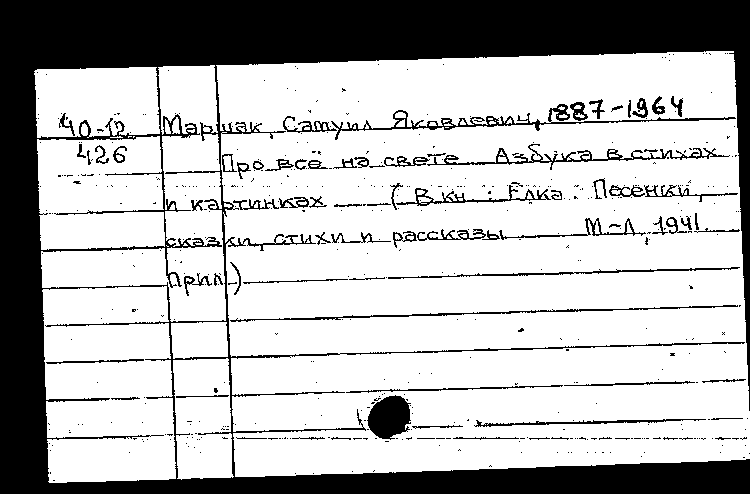 40-12 Маршак, Самуил Яковлевич, 1887-1964
426 Про всё на свете Азбука в стихах
и картинках (В кн.: Ёлка. Песенки,
сказки, стихи и рассказы М-Л, 1941.
Прил)